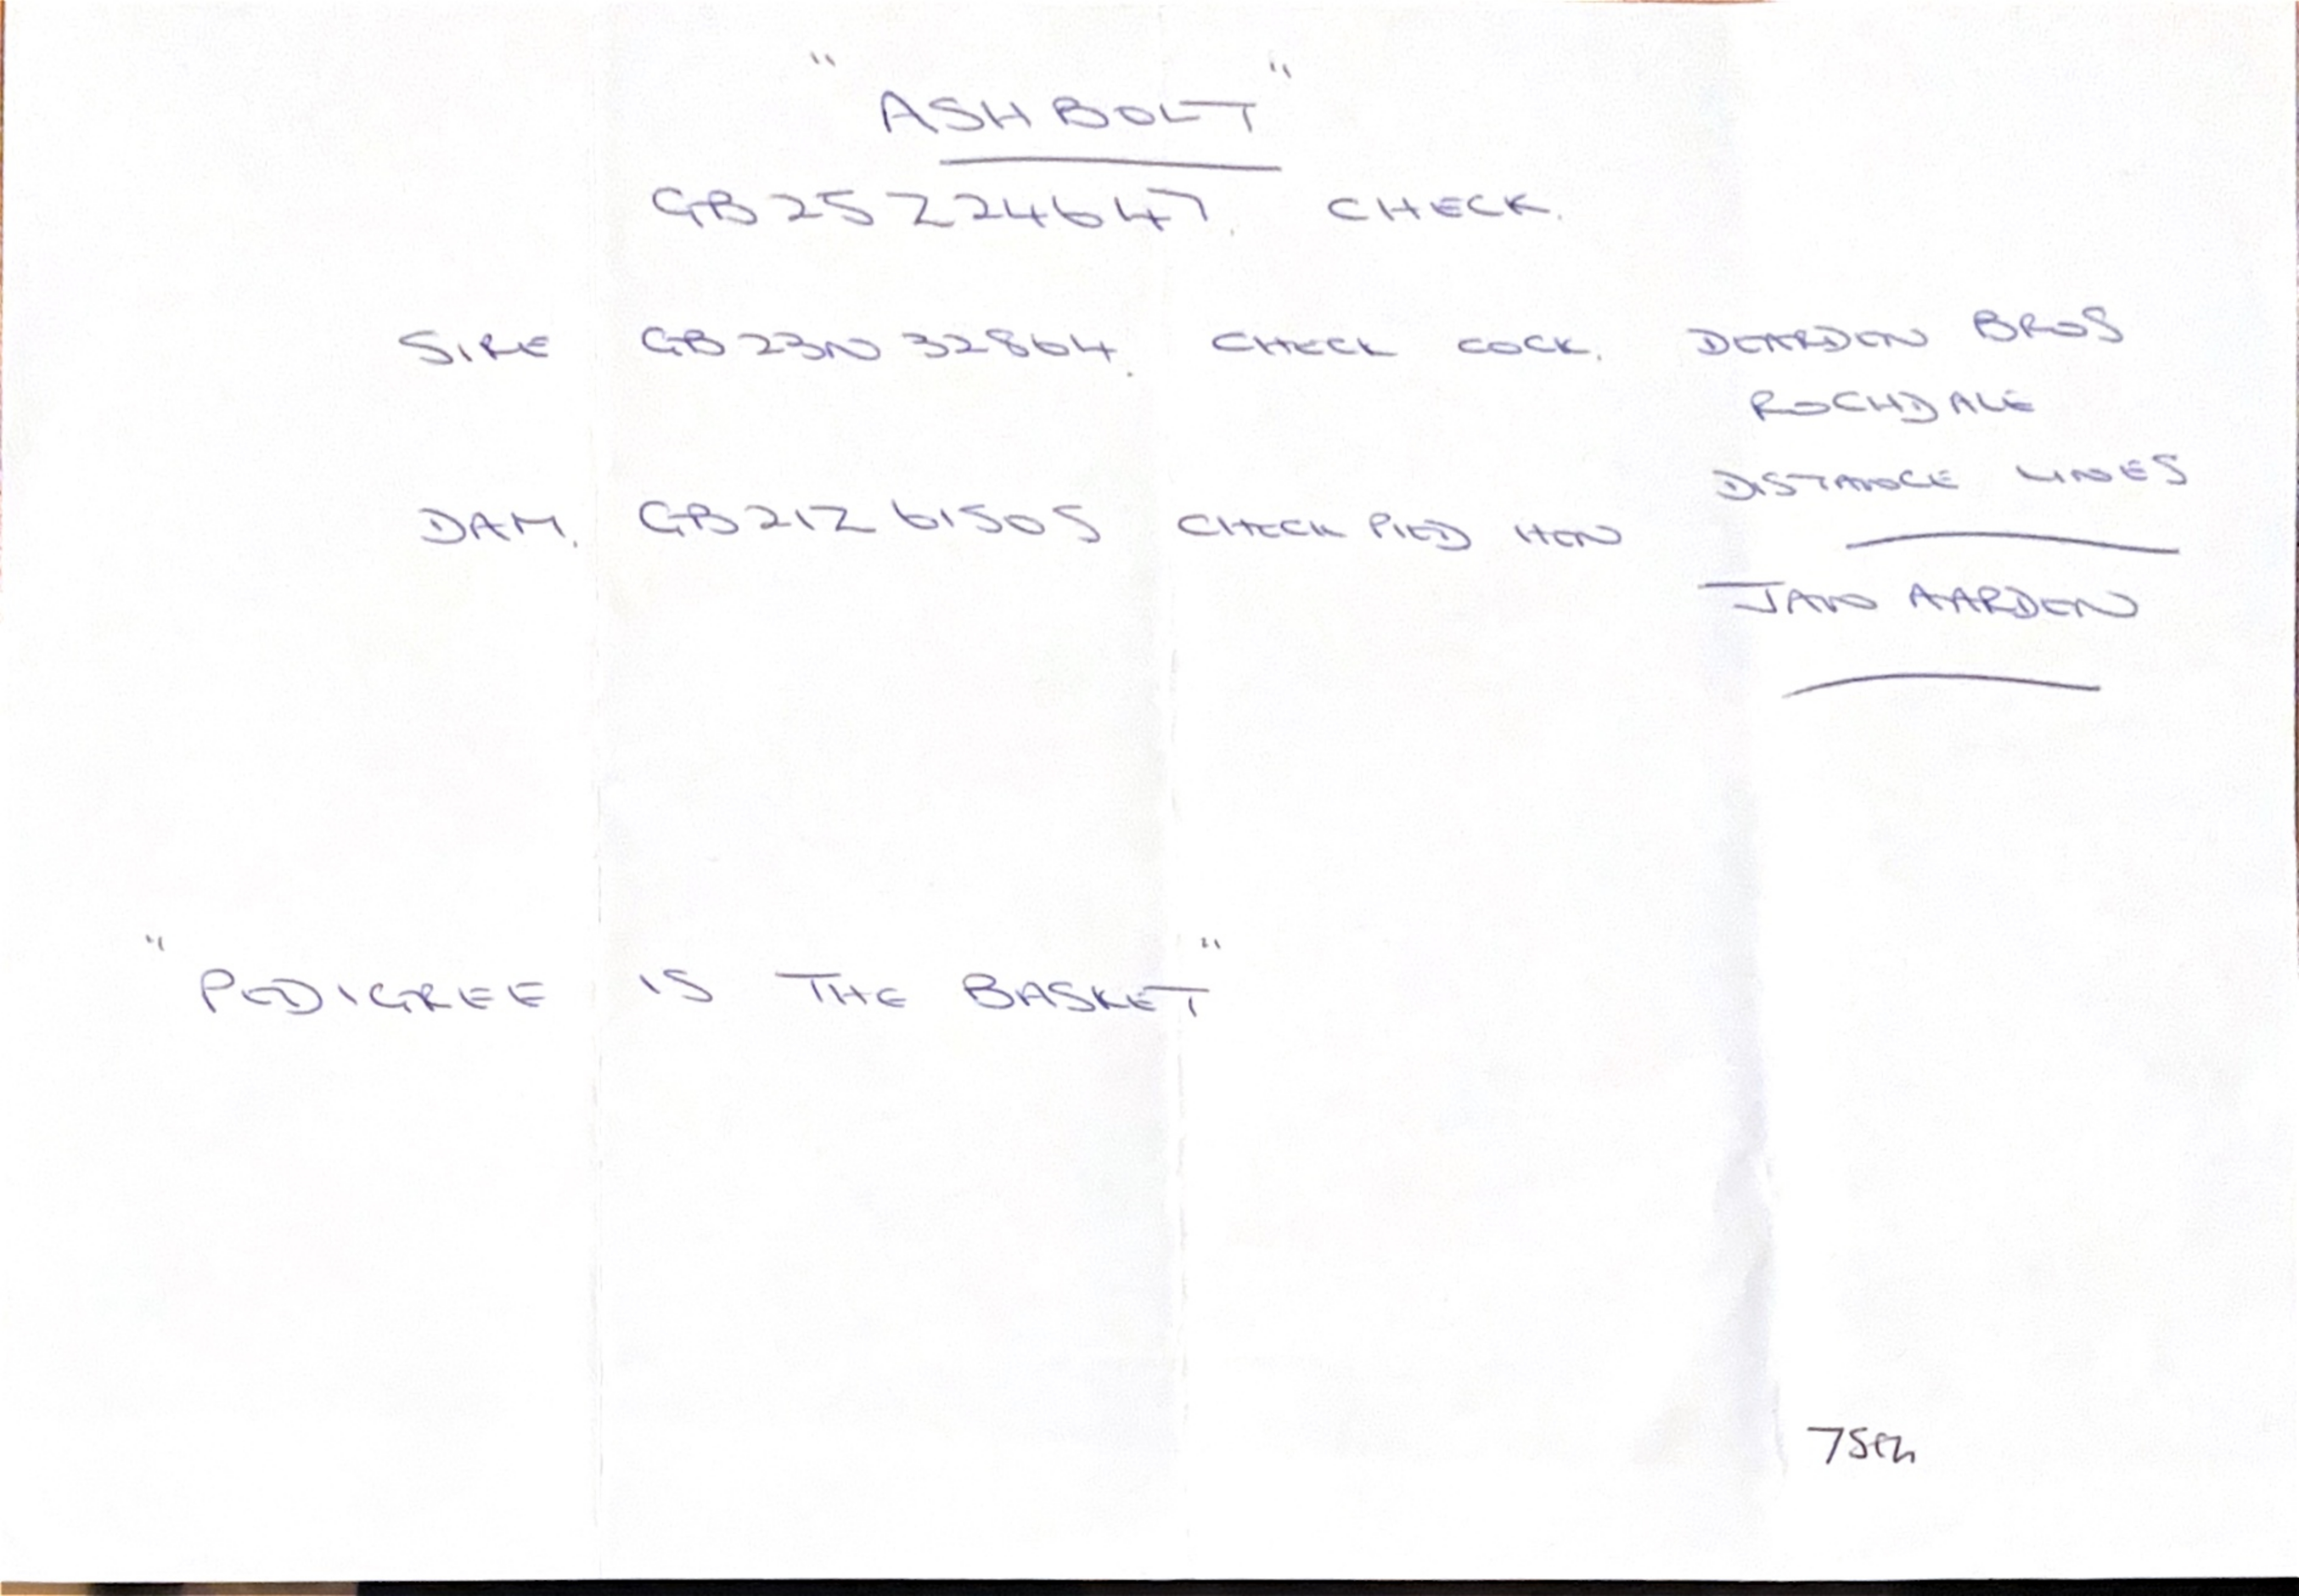 "ASHBOLT"
GB25Z24647. CHECK.
SIRE GB23N32864. CHECK COCK. DEARDEN BROS
ROCHDALE
DISTANCE LINES
DAM. GB21Z61505 CHECK PIED HEN
JAN AARDEN
"PEDIGREE IS THE BASKET"
75th